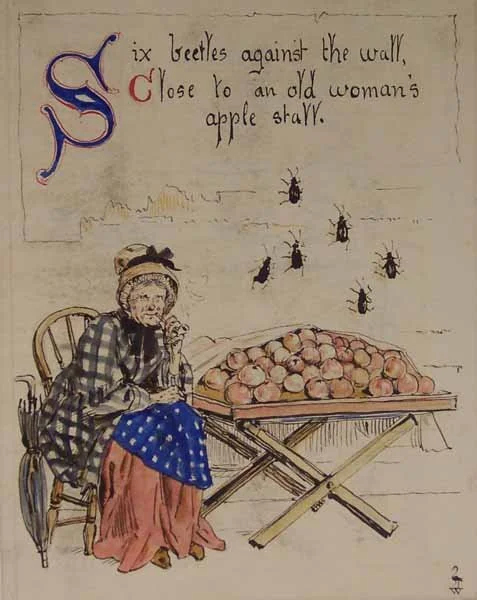 Six beetles against the wall,
Close to an old woman's
apple stall.